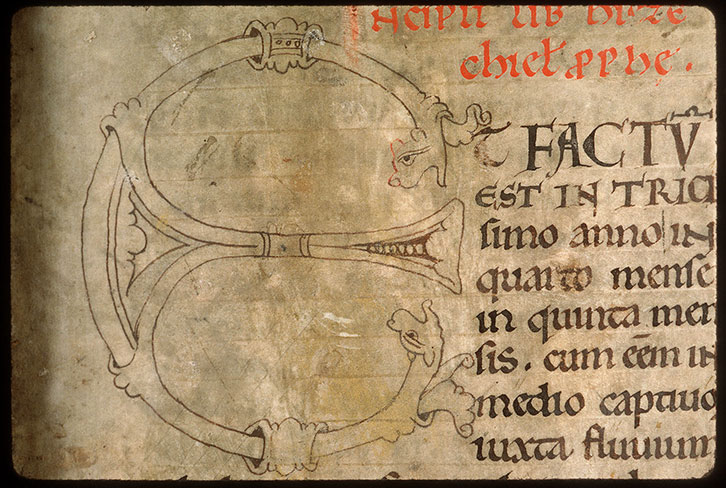 ncipit lib hieze
chiel ꝓphe.
ET FACTŪ
EST IN TRICI
simo anno IN
quarto mense
in quinta men
sis. cum eēm in
medio captiuo
iuxta fluuium